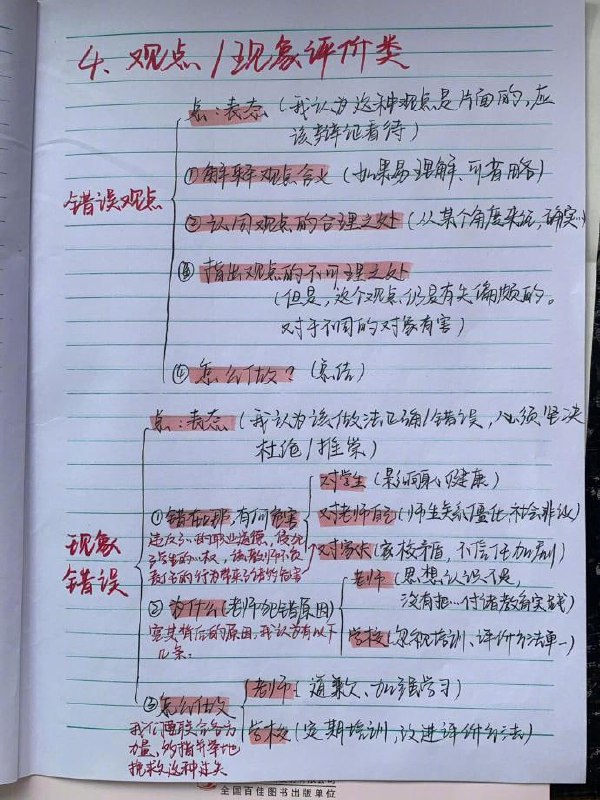 4、观点/现象评价类
总：表态（我认为这种观点是片面的，应
该辩证看待）
错误观点
①解释观点含义（如果易理解、可省略）
②认同观点的合理之处（从某个角度来说，确实…）
③指出观点的不合理之处
（但是，这个观点仍是有失偏颇的。
对于不同的对象有害）
④怎么做？（总结）
总：表态（我认为该做法正确/错误，必须坚决
杜绝/推崇）
现象
错误
①错在哪，有何危害
违反了的职业道德，侵犯
了学生的权，该教师不负
责任的行为带来了诸多危害
对学生（影响身心健康）
对老师自己（师生关系僵化，社会非议）
对家长（家校矛盾，不信任加剧）
②为什么（老师犯错原因）
究其背后的原因，我认为有以下
几条：
老师（思想认识不足，
没有把…付诸教育实践）
学校（忽视培训、评价方法单一）
③怎么做
我们要联合各方
力量，
挽救这种过失
老师（道歉、加强学习）
学校（定期培训，改进评价方法）
全国百佳图书出版单位